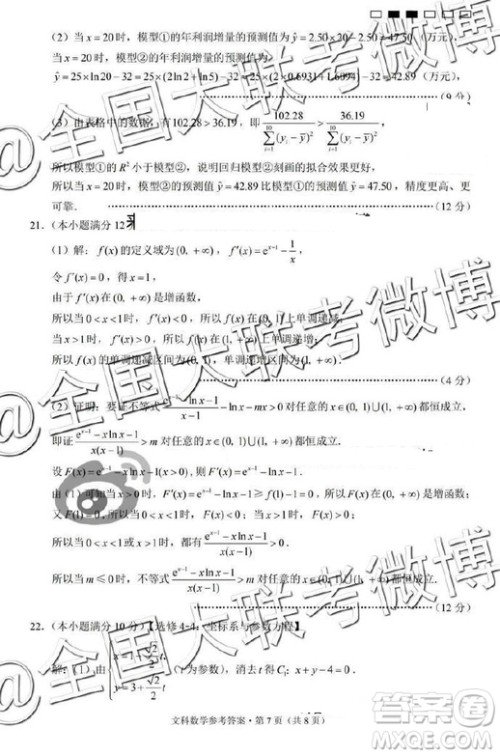 (2) 当 x=20 时，模型①的年利润增量的预测值为 ŷ=2.50×20−2.50=47.50（万元），
当 x=20 时，模型②的年利润增量的预测值为
ŷ=25×ln20−32=25×(2ln2+ln5)−32≈25×(2×0.6931+1.6094)−32≈42.89（万元）.
(9 分)
(3) 由表格中的数据，有 102.28>36.19，即 102.28/∑(yᵢ−ȳ)² > 36.19/∑(yᵢ−ȳ)²，
所以模型①的 R² 小于模型②，说明回归模型②刻画的拟合效果更好，
所以当 x=20 时，模型②的预测值 ŷ=42.89 比模型①的预测值 ŷ=47.50，精度更高、更
可靠. (12 分)
21.（本小题满分 12
(1) 解：f(x) 的定义域为 (0, +∞)，f′(x)=eˣ⁻¹−1/x，
令 f′(x)=0，得 x=1，
由于 f′(x) 在 (0, +∞) 是增函数，
所以当 0<x<1 时，f′(x)<0，f(x) 在 (0, 1) 上单调递减，
当 x>1 时，f′(x)>0，f(x) 在 (1, +∞) 上单调递增；
所以 f(x) 的单调递减区间为 (0, 1)，单调递增区间为 (1, +∞).
(4 分)
(2) 证明：要证不等式 (eˣ⁻¹−1)/(x−1)−ln x−mx>0 对任意的 x∈(0, 1)∪(1, +∞) 都恒成立，
即证 (eˣ⁻¹−x ln x−1)/(x(x−1))>m 对任意的 x∈(0, 1)∪(1, +∞) 都恒成立.
设 F(x)=eˣ⁻¹−x ln x−1(x>0)，则 F′(x)=eˣ⁻¹−ln x−1.
由 (1) 可知当 x>0 时，F′(x)=eˣ⁻¹−ln x−1≥f(1)−1=0，所以 F(x) 是增函数；
又 F(1)=0，所以当 0<x<1 时，F(x)<0；当 x>1 时，F(x)>0.
所以当 0<x<1 或 x>1 时，(eˣ⁻¹−x ln x−1)/(x(x−1))>0.
所以当 m≤0 时，不等式 (eˣ⁻¹−x ln x−1)/(x(x−1))>m 对任意的 x∈(0, 1)∪(1, +∞) 都恒成立.
(12 分)
22.（本小题满分 10 分）【选修 4-4：坐标系与参数方程】
解：(1) 由 {x=1−(√2/2)t, y=3+(√2/2)t （t 为参数），消去 t 得 C₁：x+y−4=0，
文科数学参考答案·第 7 页（共 8 页）
@全国大联考微博
@全国大联考微博
答案圈
MXQE.COM